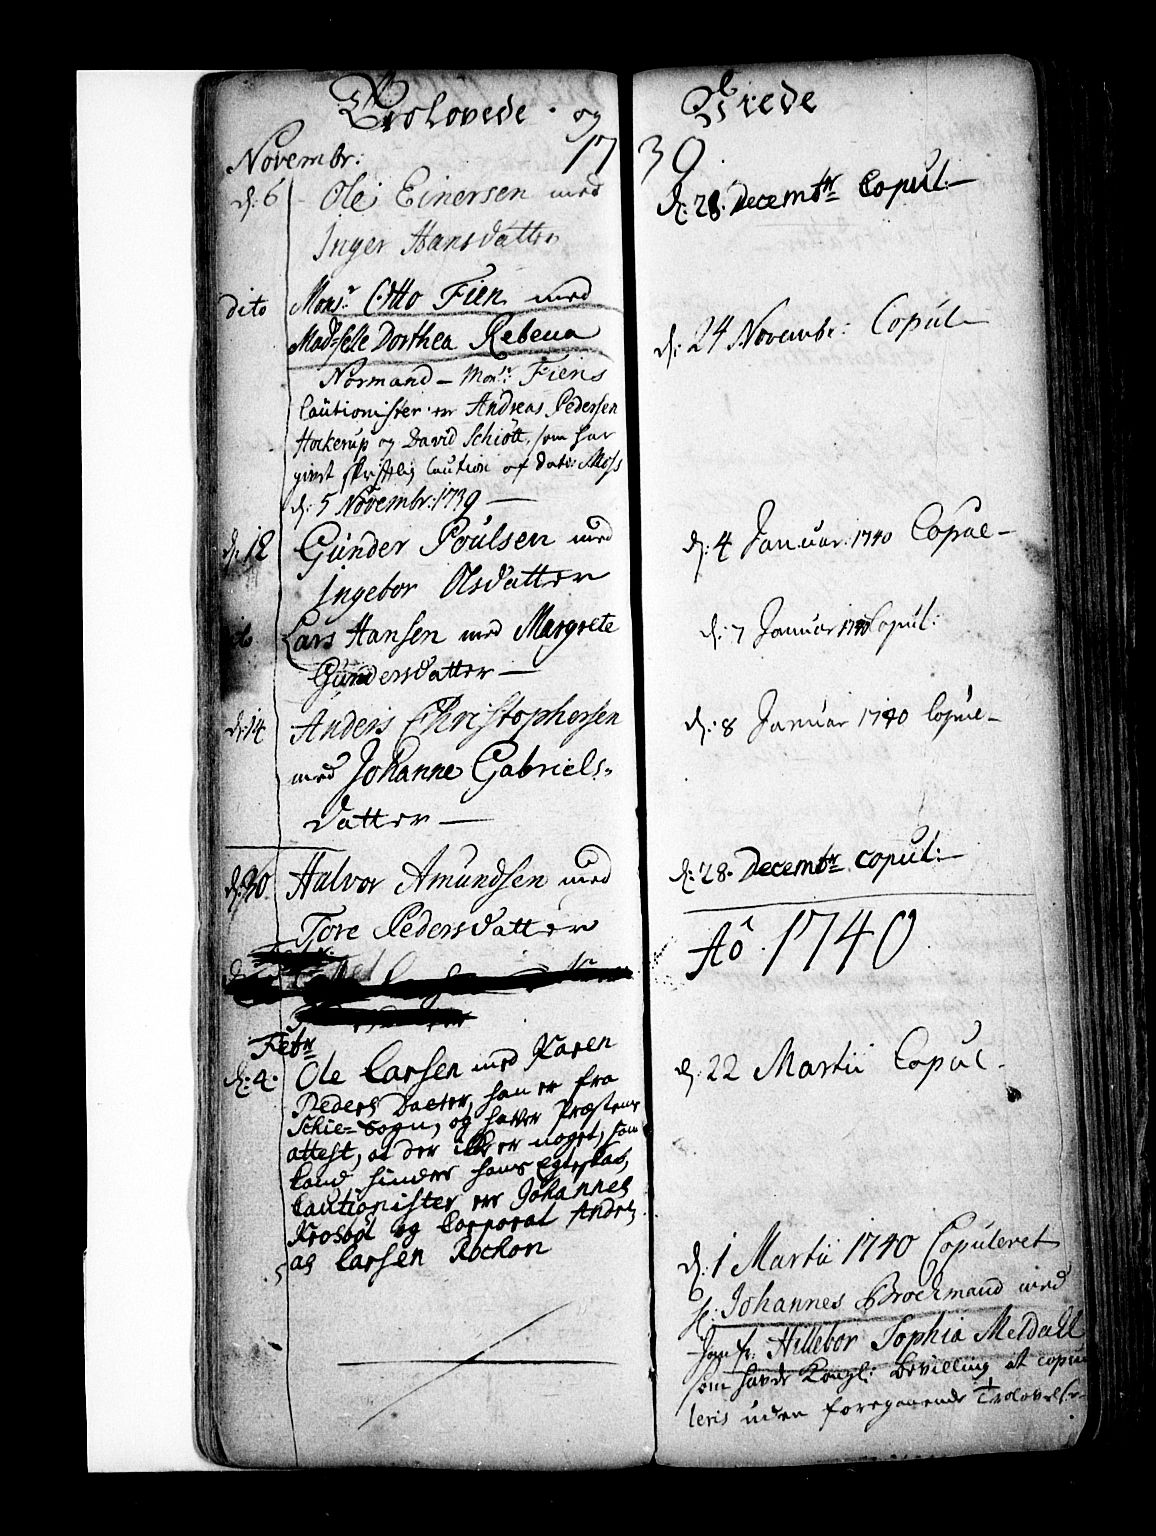 Trolovede og
Novembr: 17
d: 6 Ole Einersen med
Inger Hansdatter
dito Monsr. Otto Fien med
Madselle Dorthea Rebecca
Normand – Monsr: Fiens
Cautionister er Andreas Pedersen
Hockerup og David Schiött, som har
givet skriftlig Caution af dato Moss
d: 5 Novembr: 1739 —
d: 12 Gunder Poulsen med
Ingebor Olsdatter
do Lars Hansen med Margrete
Gundersdatter —
d: 14 Anders Christophersen
med Johanne Gabriels-
datter —
d: 30 Halvor Amundsen med
Tore Pedersdatter
Febr
d: 4. Ole Larsen med Karen
Peders Datter, han er fra
Schie-Sogn, og haver Præstens
attest, at der ikke er noget, som
kand hinder hans Egteskab,
Cautionister er Johannes
Krosbøl og Corporal Andre-
as Larsen Rockon
Viede
39
d: 28. Decembr Copul: —
d: 24 Novembr: Copul —
d: 4 Januar: 1740 Copul —
d: 7 Januar 1740 Copul:
d: 8 Januar 1740 Copul —
d: 28. Decembr copul: —
Aô 1740
d: 22 Martii Copul -
d: 1 Martii 1740 Copuleret
hr: Johannes Brochmand med
Jomfr: Hillebor Sophia Meldall
som havde Kongl: Bevilling at copu-
leris uden foregaaende Trolovelse